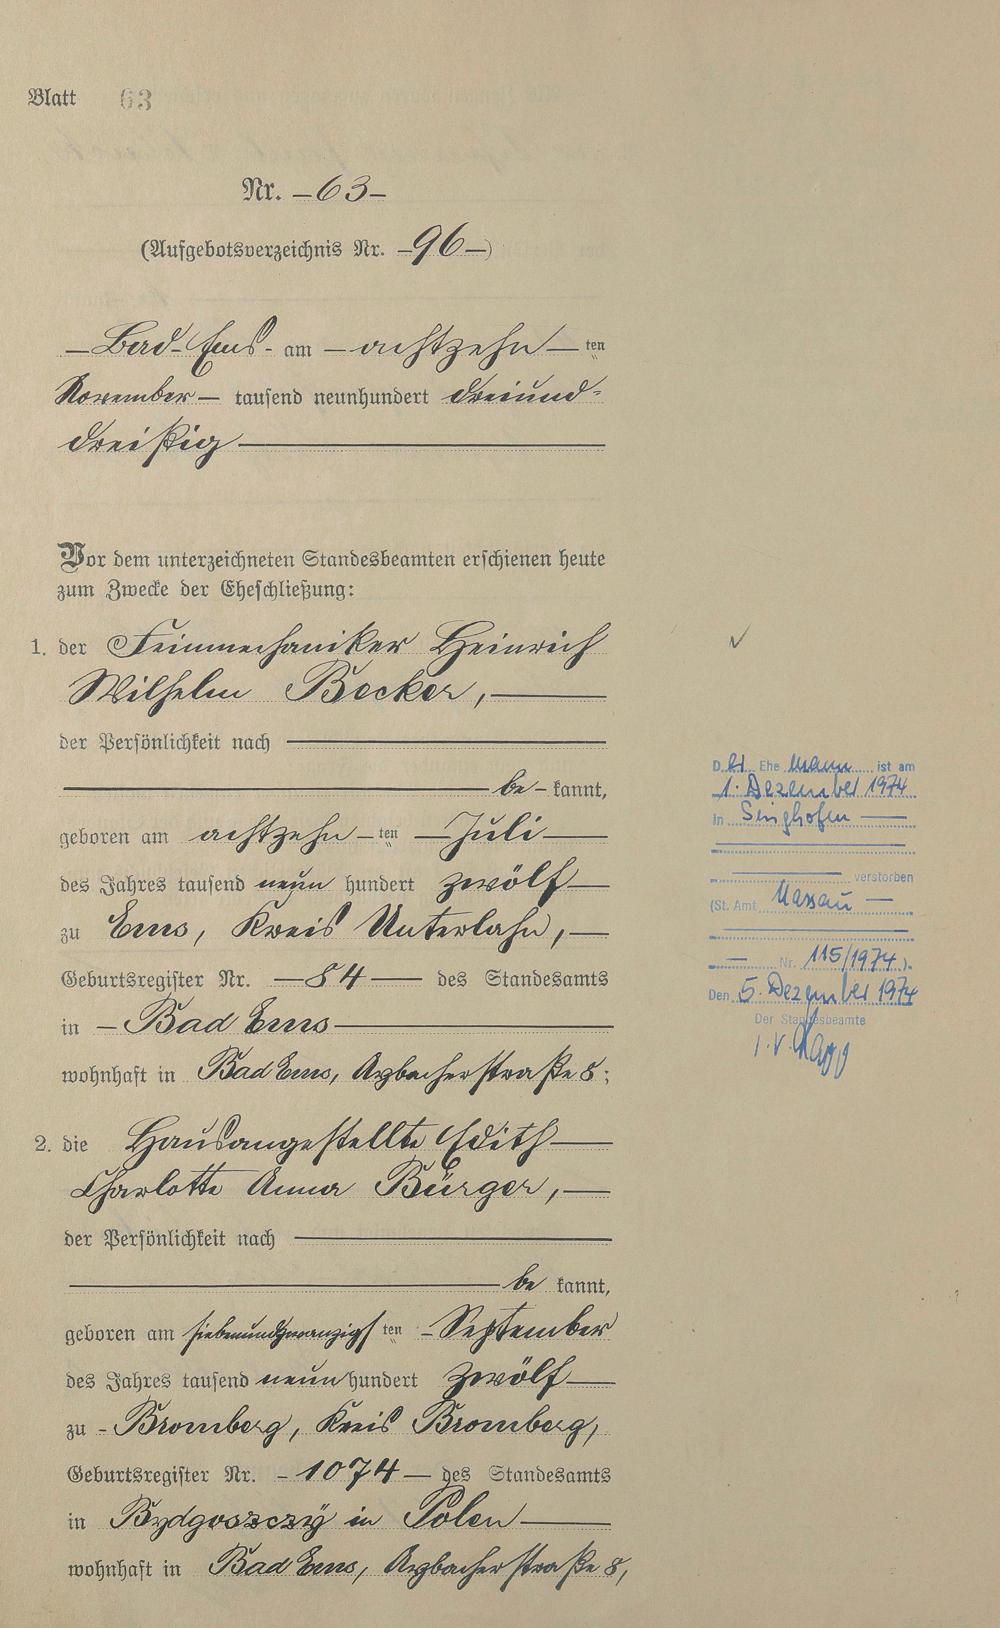 Blatt 63
Nr. -63-
(Aufgebotsverzeichnis Nr. -96-)
-Bad-Ems- am -achtzehn- ten
November- tausend neunhundert dreiund-
dreißig
Vor dem unterzeichneten Standesbeamten erschienen heute
zum Zwecke der Eheschließung:
1. der Feinmechaniker Heinrich
Wilhelm Becker,
der Persönlichkeit nach
be- kannt,
geboren am achtzehn- ten -Juli-
des Jahres tausend neun hundert zwölf-
zu Ems, Kreis Unterlahn,-
Geburtsregister Nr. -84- des Standesamts
in -Bad Ems-
wohnhaft in Bad Ems, Arzbacherstraße 8;
2. die Hausangestellte Edith-
Charlotte Anna Bürger,-
der Persönlichkeit nach
be kannt,
geboren am siebenundzwanzigs ten -September
des Jahres tausend neun hundert zwölf-
zu -Bromberg, Kreis Bromberg,
Geburtsregister Nr. -1074- des Standesamts
in Bydgoszczÿ in Polen-
wohnhaft in Bad Ems, Arzbacherstraße 8,
Der Ehemann ist am
1. Dezember 1974
in Singhofen -
verstorben
(St. Amt Nassau -
- Nr. 115/1974).
Den 5. Dezember 1974
Der Standesbeamte
I.V.